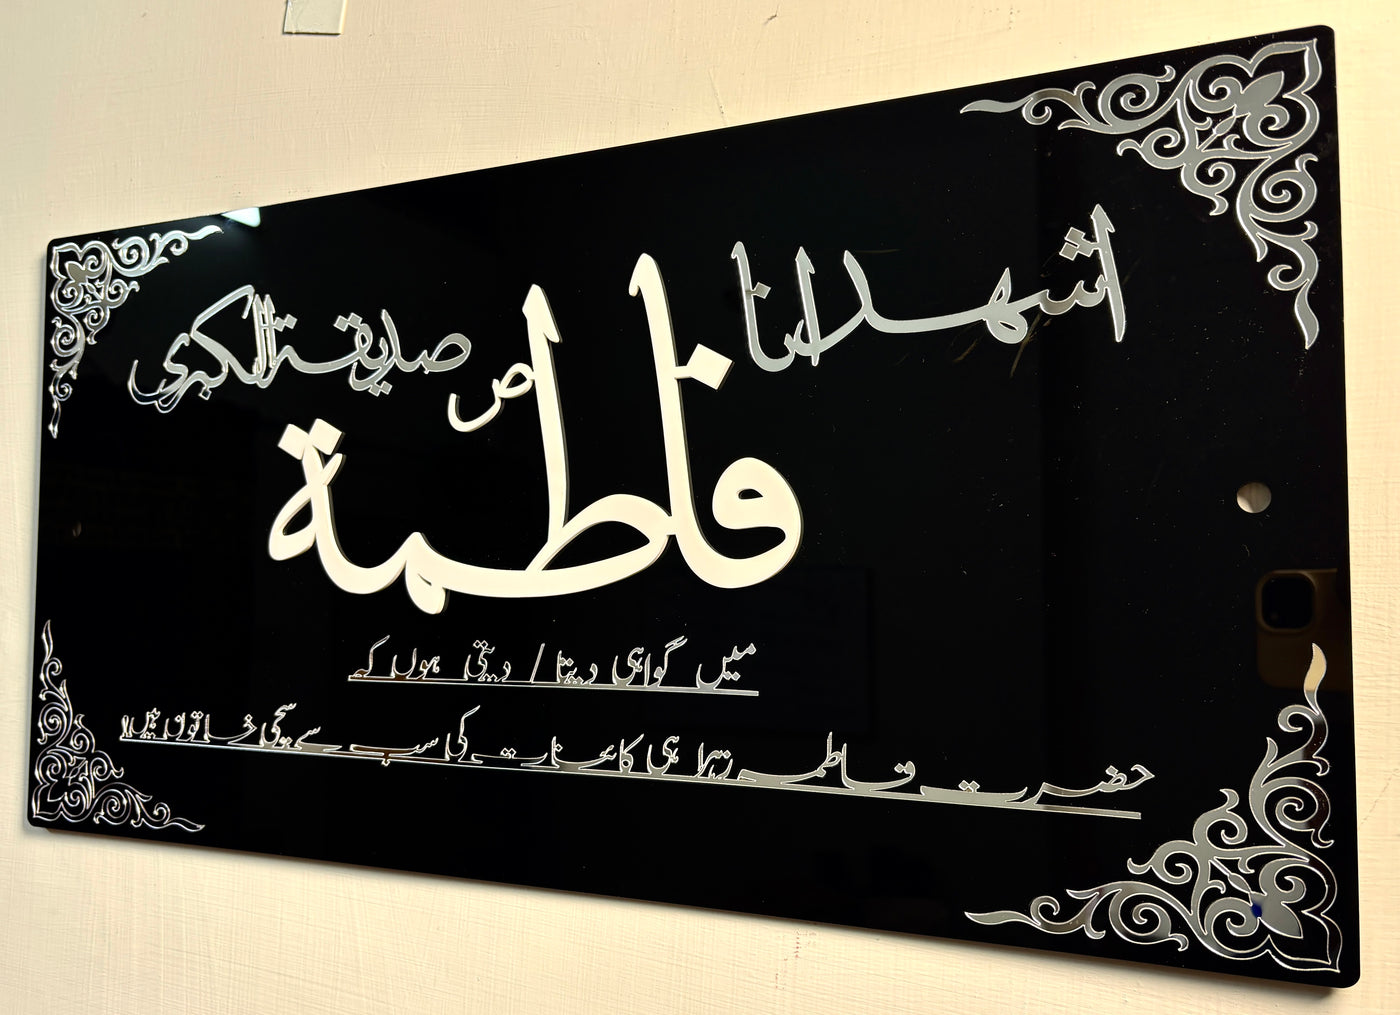 اشهد ان فاطمة ص صديقة الكبرى
میں گواہی دیتا / دیتی ہوں کہ
حضرت فاطمہ زہرا ہی کائنات کی سب سے سچی خاتون ہیں